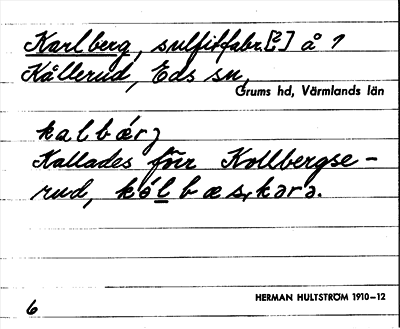 Karlberg, sulfitfabr.[?] å 1
Kållerud, Eds sn,
Grums hd, Värmlands län
kalbǽrg
Kallades förr Kollbergse-
rud, kólbæskara.
HERMAN HULTSTRÖM 1910–12
6